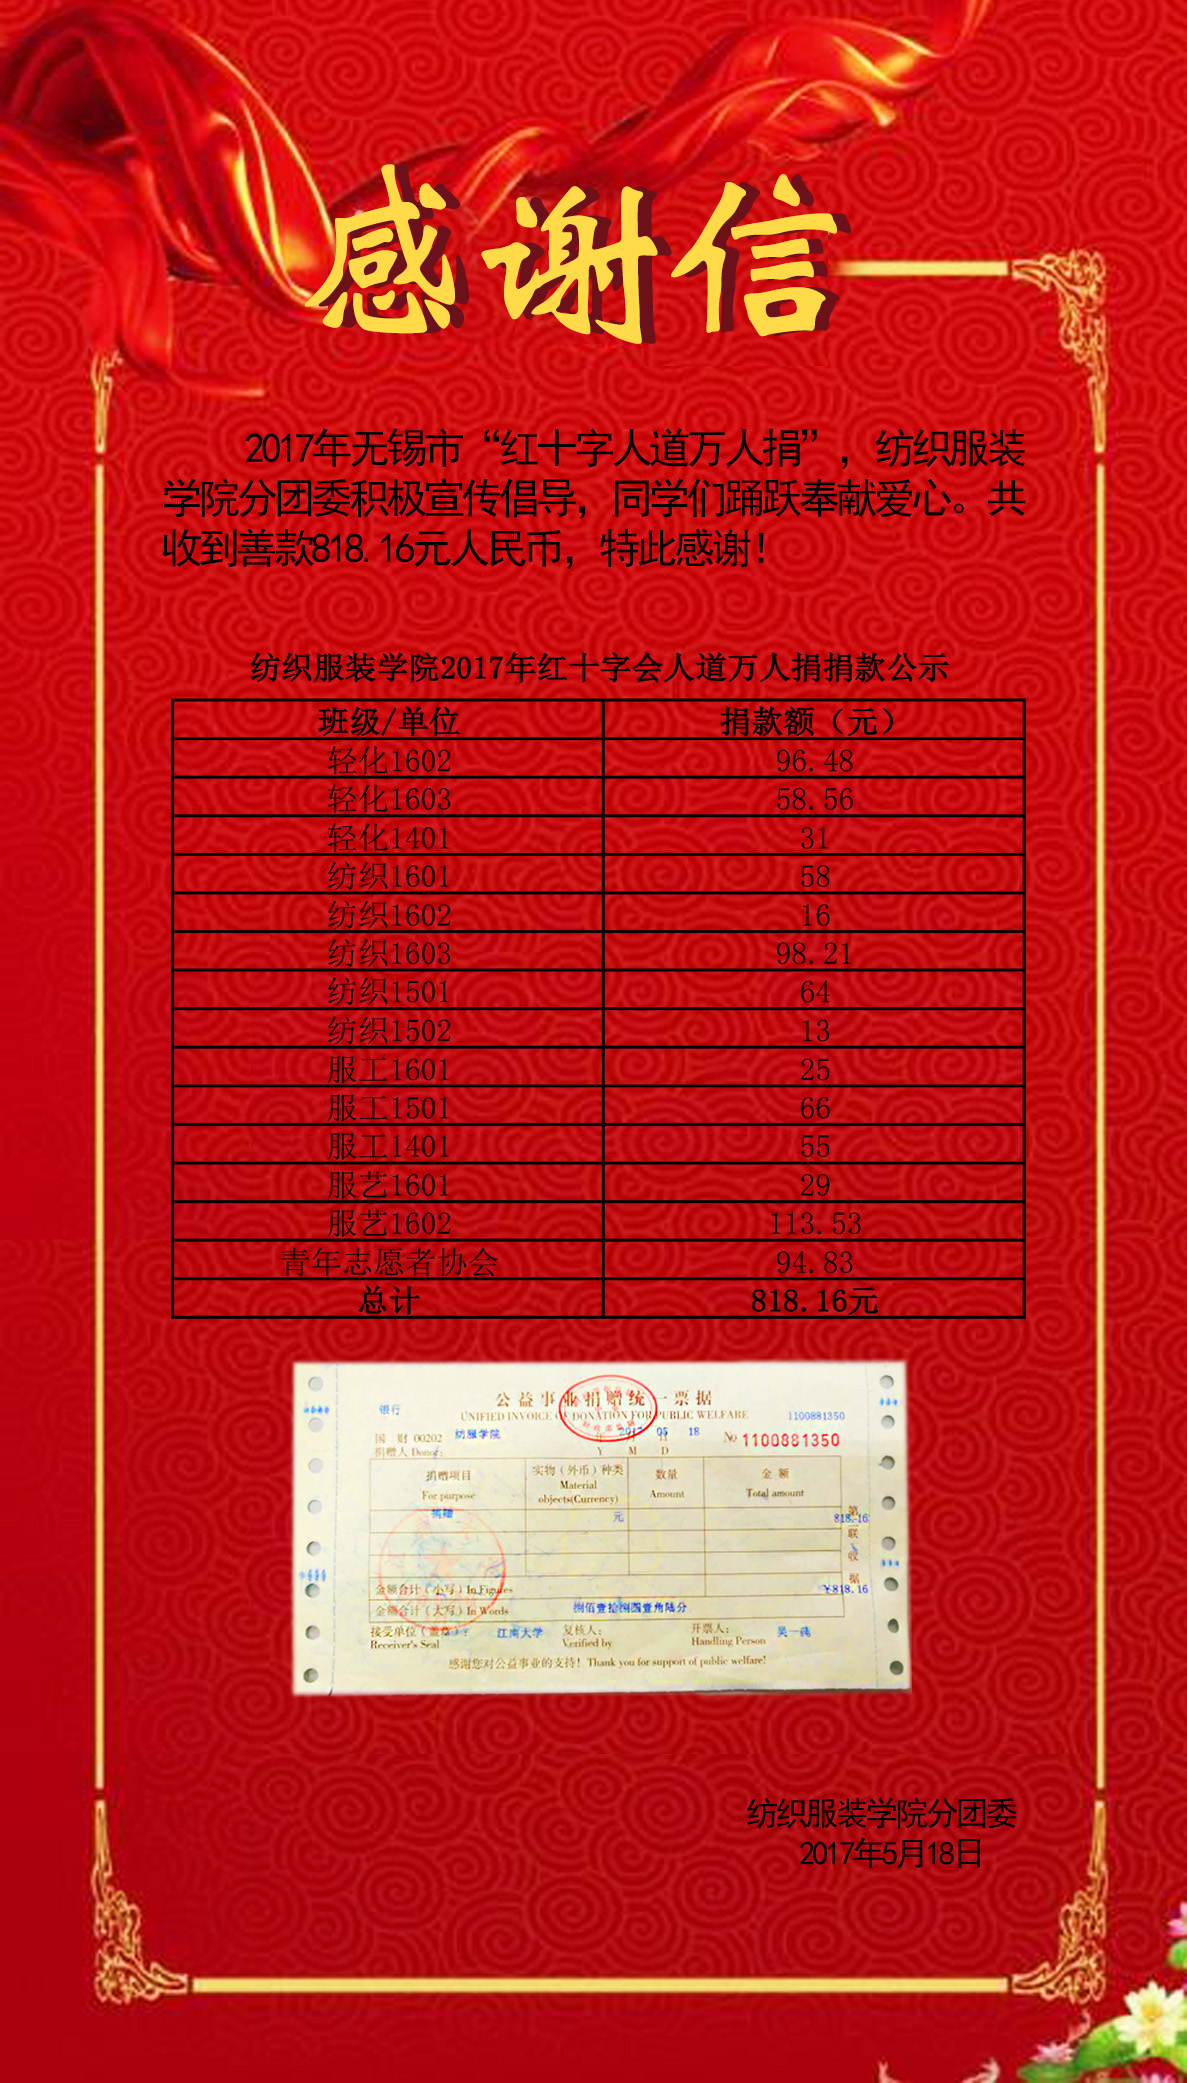 感谢信
2017年无锡市“红十字人道万人捐”，纺织服装
学院分团委积极宣传倡导，同学们踊跃奉献爱心。共
收到善款818.16元人民币，特此感谢！
纺织服装学院2017年红十字会人道万人捐捐款公示
班级/单位 捐款额（元）
轻化1602 96.48
轻化1603 58.56
轻化1401 31
纺织1601 58
纺织1602 16
纺织1603 98.21
纺织1501 64
纺织1502 13
服工1601 25
服工1501 66
服工1401 55
服艺1601 29
服艺1602 113.53
青年志愿者协会 94.83
总计 818.16元
公益事业捐赠统一票据
银行 UNIFIED INVOICE OF DONATION FOR PUBLIC WELFARE 1100881350
国 财 00202 纺服学院 年 2017 月 05 日 18 No 1100881350
捐赠人 Donor: Y M D
捐赠项目 实物（外币）种类 数量 金 额
For purpose Material objects(Currency) Amount Total amount
捐赠 元 818.16
第 联 收 据
金额合计（小写）In Figures ¥818.16
金额合计（大写）In Words 捌佰壹拾捌圆壹角陆分
接受单位（盖章）： 江南大学 复核人： 开票人： 吴一
Receiver's Seal Verified by Handling Person
感谢您对公益事业的支持！Thank you for support of public welfare!
纺织服装学院分团委
2017年5月18日